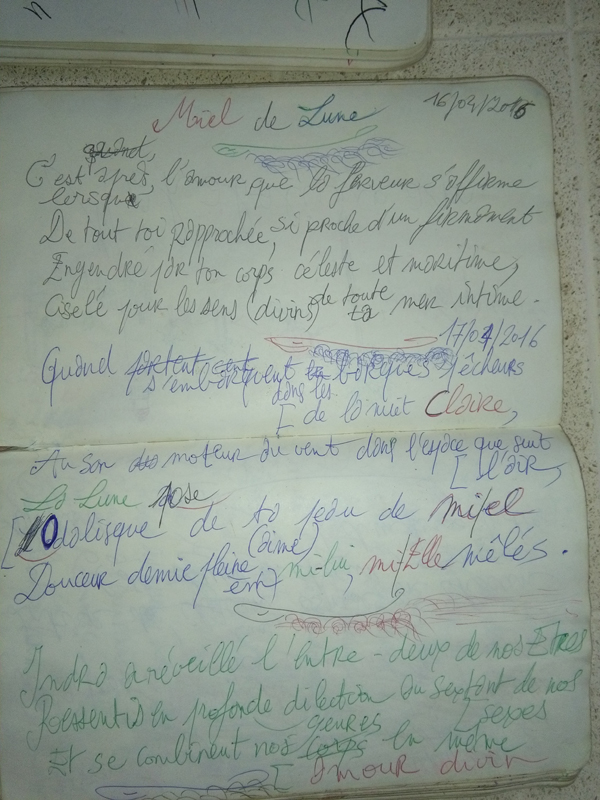 Miel de Lune
16/04/2016
quand,
C'est après, l'amour que la ferveur s'affirme
lorsque
De tout toi rapprochée, si proche d'un firmament
Engendré par ton corps céleste et maritime,
Ciselé pour les sens (divins) de toute
ta mer intime.
17/04/2016
Quand partent cet barques pêcheurs
s'embarquent
dans les
[ de la nuit Claire,
Au son du moteur du vent dans l'espace que suit
[ l'air,
La Lune pose
[L'Odalisque de ta peau de miel
Douceur demie pleine (aime)
est mi-lui, mi-Elle mêlés.
Indra a réveillé l'Entre-deux de nos Êtres
Ressentis en profonde dilection au sextant de nos
[ sexes
Et se combinent nos corps en même
genres
[ Amour divin